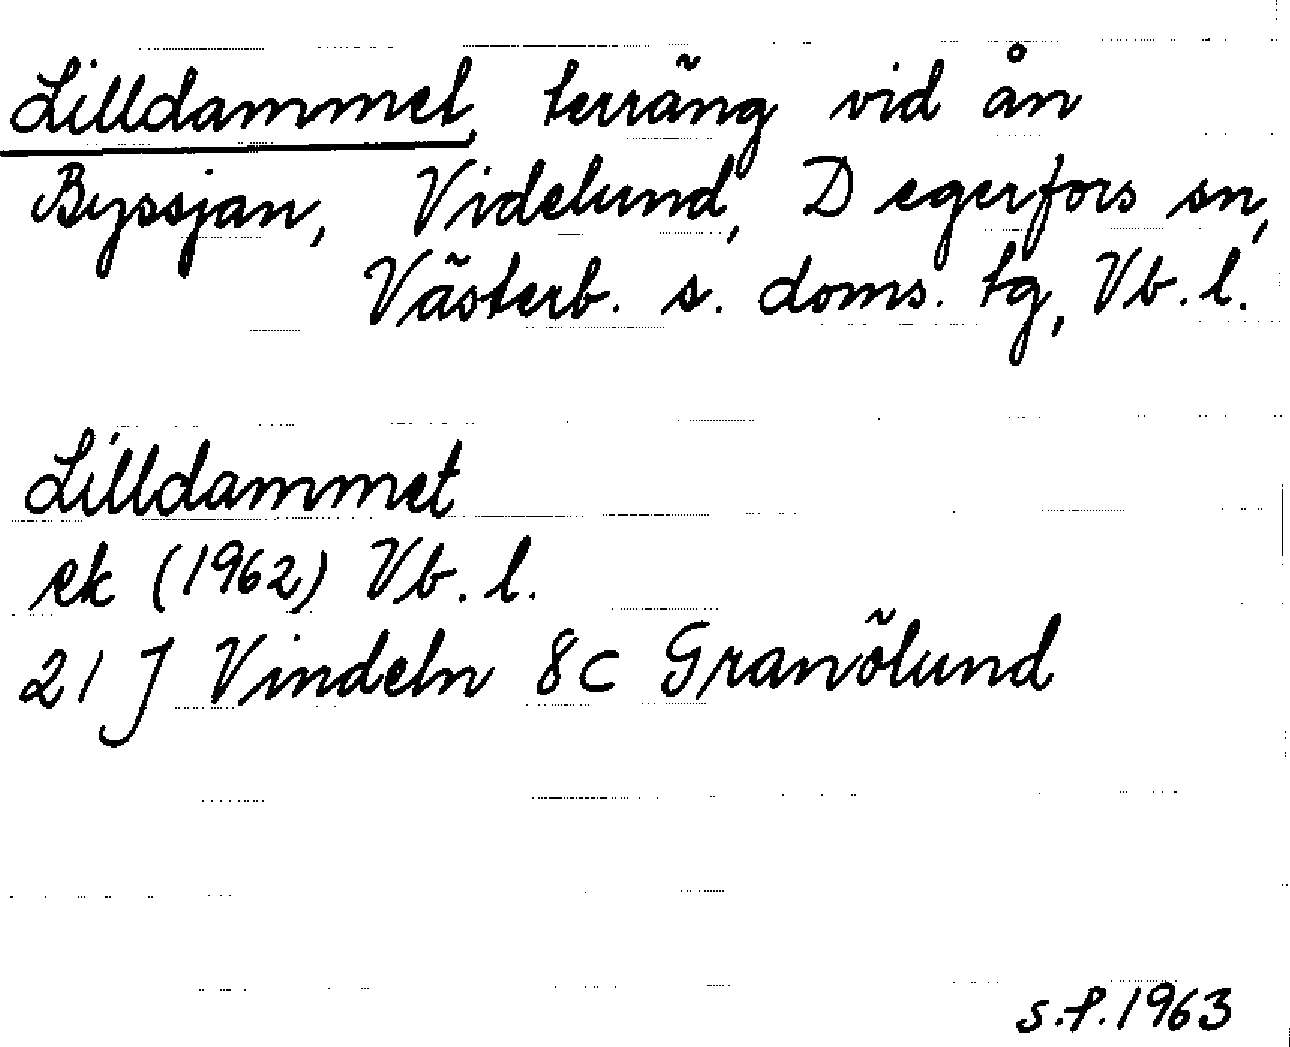 Lilldammet, terräng vid ån
Byssjan, Videlund, Degerfors sn,
Västerb. s. doms. tg, Vb. l.
Lilldammet
ek (1962) Vb. l.
21 J Vindeln 8C Granölund
s.f. 1963